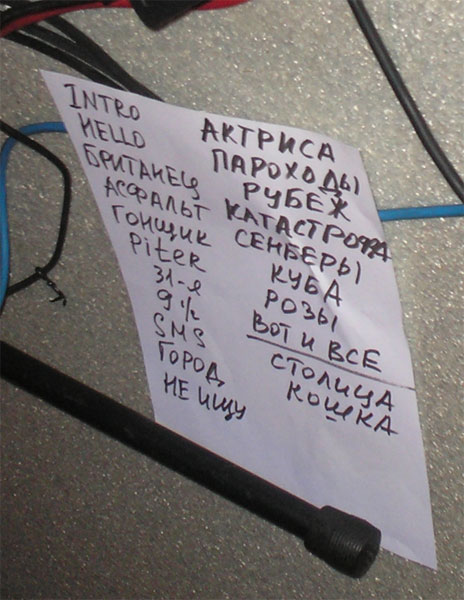 INTRO
HELLO
БРИТАНЕЦ
АСФАЛЬТ
ГОНЩИК
Piter
31-я
9 1/2
SMS
ГОРОД
НЕ ИЩУ
АКТРИСА
ПАРОХОДЫ
РУБЕЖ
КАТАСТРОФА
СЕНБЕРЫ
КУБА
РОЗЫ
ВОТ И ВСЕ
СТОЛИЦА
КОШКА